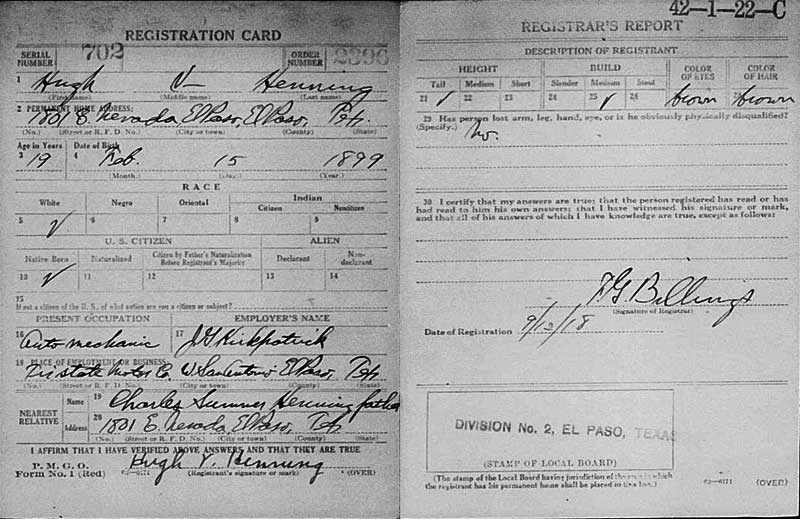 REGISTRATION CARD
SERIAL NUMBER 702 ORDER NUMBER 2396
1 Hugh V Henning
(First name) (Middle name) (Last name)
2 PERMANENT HOME ADDRESS:
1801 E. Nevada, El Paso, El Paso, Tex.
(No.) (Street or R. F. D. No.) (City or town) (County) (State)
Age in Years Date of Birth
3 19 4 Feb. 15 1899
(Month.) (Day.) (Year.)
RACE
White Negro Oriental Indian
Citizen Noncitizen
5 ✓ 6 7 8 9
U. S. CITIZEN ALIEN
Native Born Naturalized Citizen by Father's Naturalization Before Registrant's Majority Declarant Non-declarant
10 ✓ 11 12 13 14
15
If not a citizen of the U. S., of what nation are you a citizen or subject?
PRESENT OCCUPATION EMPLOYER'S NAME
16 Auto mechanic 17 J G Kirkpatrick
18 PLACE OF EMPLOYMENT OR BUSINESS:
Tri State Motor Co. W San Antonio El Paso, Tex
(No.) (Street or R. F. D. No.) (City or town) (County) (State)
NEAREST RELATIVE Name 19 Charles Sumner Henning father
Address 20 1801 E. Nevada, El Paso, Tex
(No.) (Street or R. F. D. No.) (City or town) (County) (State)
I AFFIRM THAT I HAVE VERIFIED ABOVE ANSWERS AND THAT THEY ARE TRUE
P. M. G. O.
Form No. 1 (Red) Hugh V. Henning
(Registrant's signature or mark) (OVER)
42-1-22-C
REGISTRAR'S REPORT
DESCRIPTION OF REGISTRANT
HEIGHT BUILD COLOR OF EYES COLOR OF HAIR
Tall Medium Short Slender Medium Stout
21 ✓ 22 23 24 25 ✓ 26 brown brown
29 Has person lost arm, leg, hand, eye, or is he obviously physically disqualified?
(Specify.) no.
30 I certify that my answers are true; that the person registered has read or has
had read to him his own answers; that I have witnessed his signature or mark,
and that all of his answers of which I have knowledge are true, except as follows:
F G Billings
(Signature of Registrar)
Date of Registration 9/12/18
DIVISION No. 2, EL PASO, TEXAS
(STAMP OF LOCAL BOARD)
(The stamp of the Local Board having jurisdiction of the area in which
the registrant has his permanent home shall be placed in this box.)
(OVER)